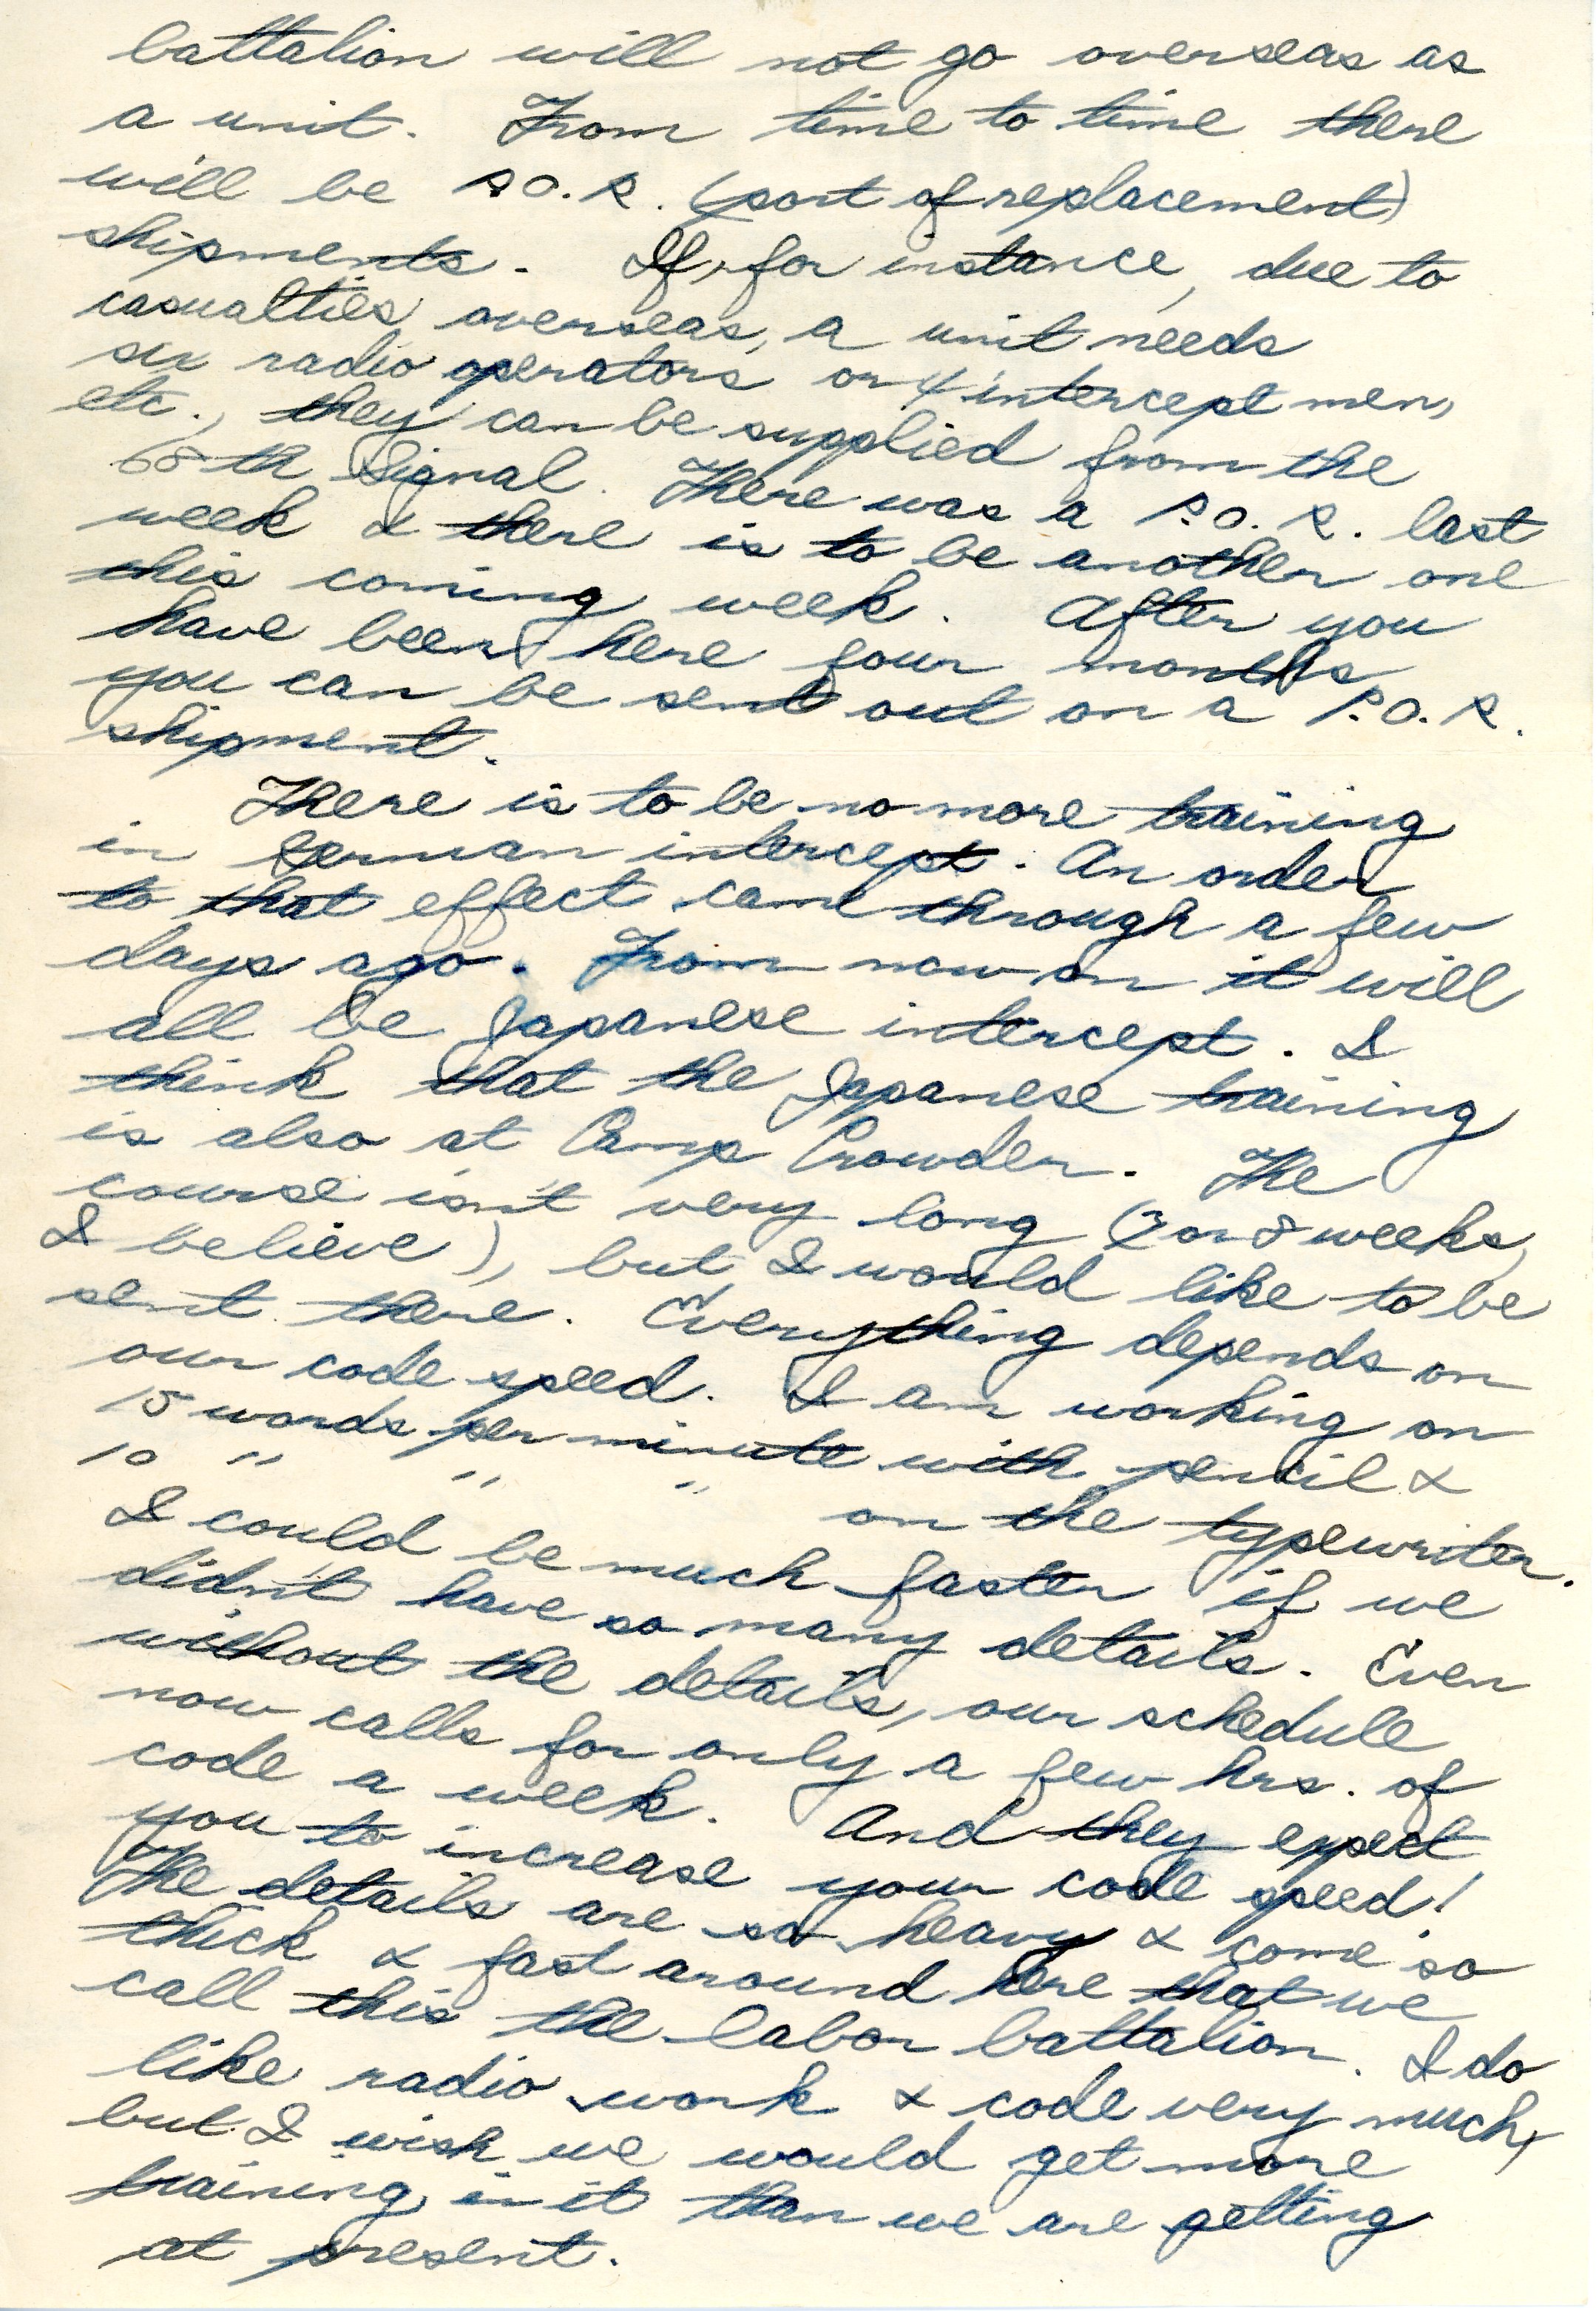 battalion will not go overseas as
a unit. From time to time there
will be P.O.R. (port of replacement)
shipments. If, for instance, due to
casualties overseas, a unit needs
six radio operators or 4 intercept men,
etc., they can be supplied from the
68th Signal. There was a P.O.R. last
week & there is to be another one
this coming week. After you
have been here four months
you can be sent out on a P.O.R.
shipment.
There is to be no more training
in German intercept. An order
to that effect came through a few
days ago. From now on it will
all be Japanese intercept. I
think that the Japanese training
is also at Camp Crowder. The
course isn't very long (7 or 8 weeks,
I believe), but I would like to be
sent there. Everything depends on
our code speed. I am working on
15 words per minute with pencil &
10 " " " on the typewriter.
I could be much faster if we
didn't have so many details. Even
without the details, our schedule
now calls for only a few hrs. of
code a week. And they expect
you to increase your code speed!
The details are so heavy & come so
thick & fast around here that we
call this the labor battalion. I do
like radio work & code very much,
but I wish we would get more
training in it than we are getting
at present.